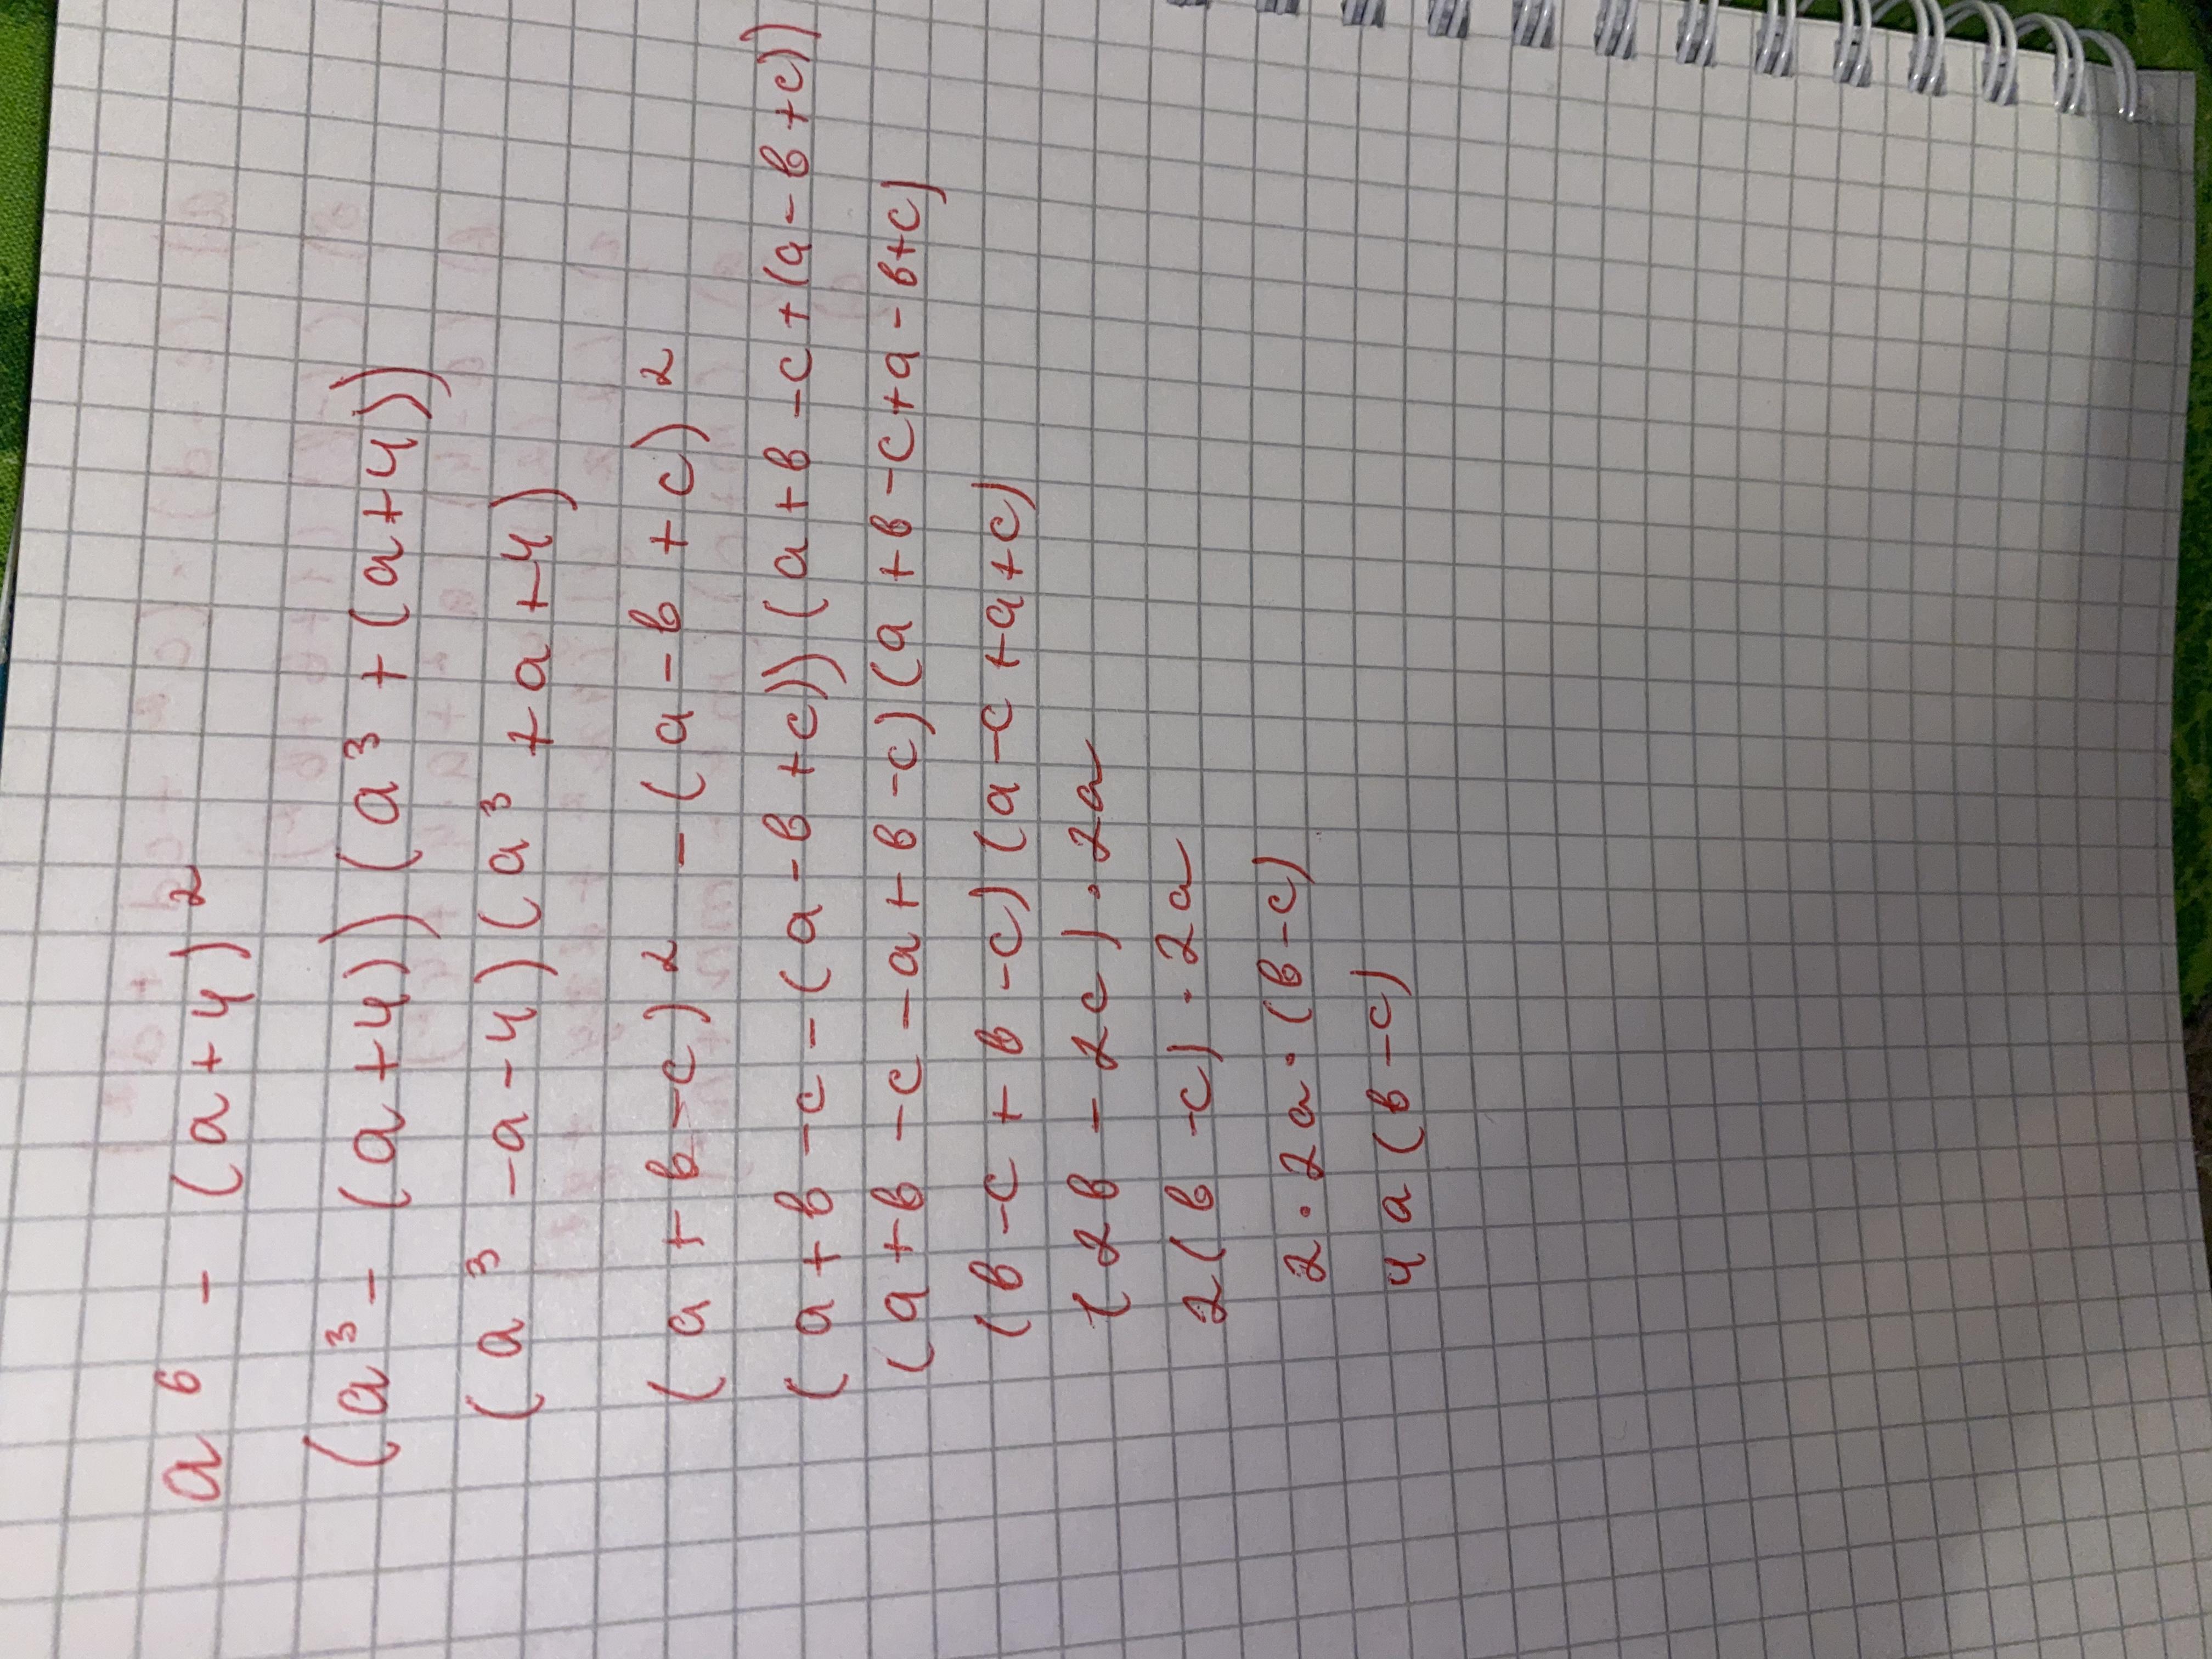 a⁶ - (a+4)²
(a³ - (a+4))(a³ + (a+4))
(a³ -a-4)(a³ +a+4)
(a+b-c)² - (a-b+c)²
(a+b-c-(a-b+c))(a+b-c+(a-b+c))
(a+b-c-a+b-c)(a+b-c+a-b+c)
(b-c+b-c)(a-c+a+c)
(2b-2c)·2a
2(b-c)·2a
2·2a·(b-c)
4a(b-c)